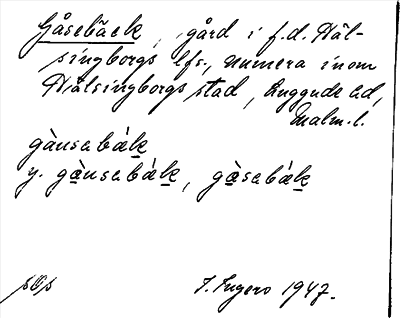 Gåsebäck, gård i f.d. Häl-
singborgs lfs., numera inom
Hälsingborgs stad, Luggude hd,
Malm.l.
gàusabák
y. gàusabák, gàsabák
I. Ingers 1947.